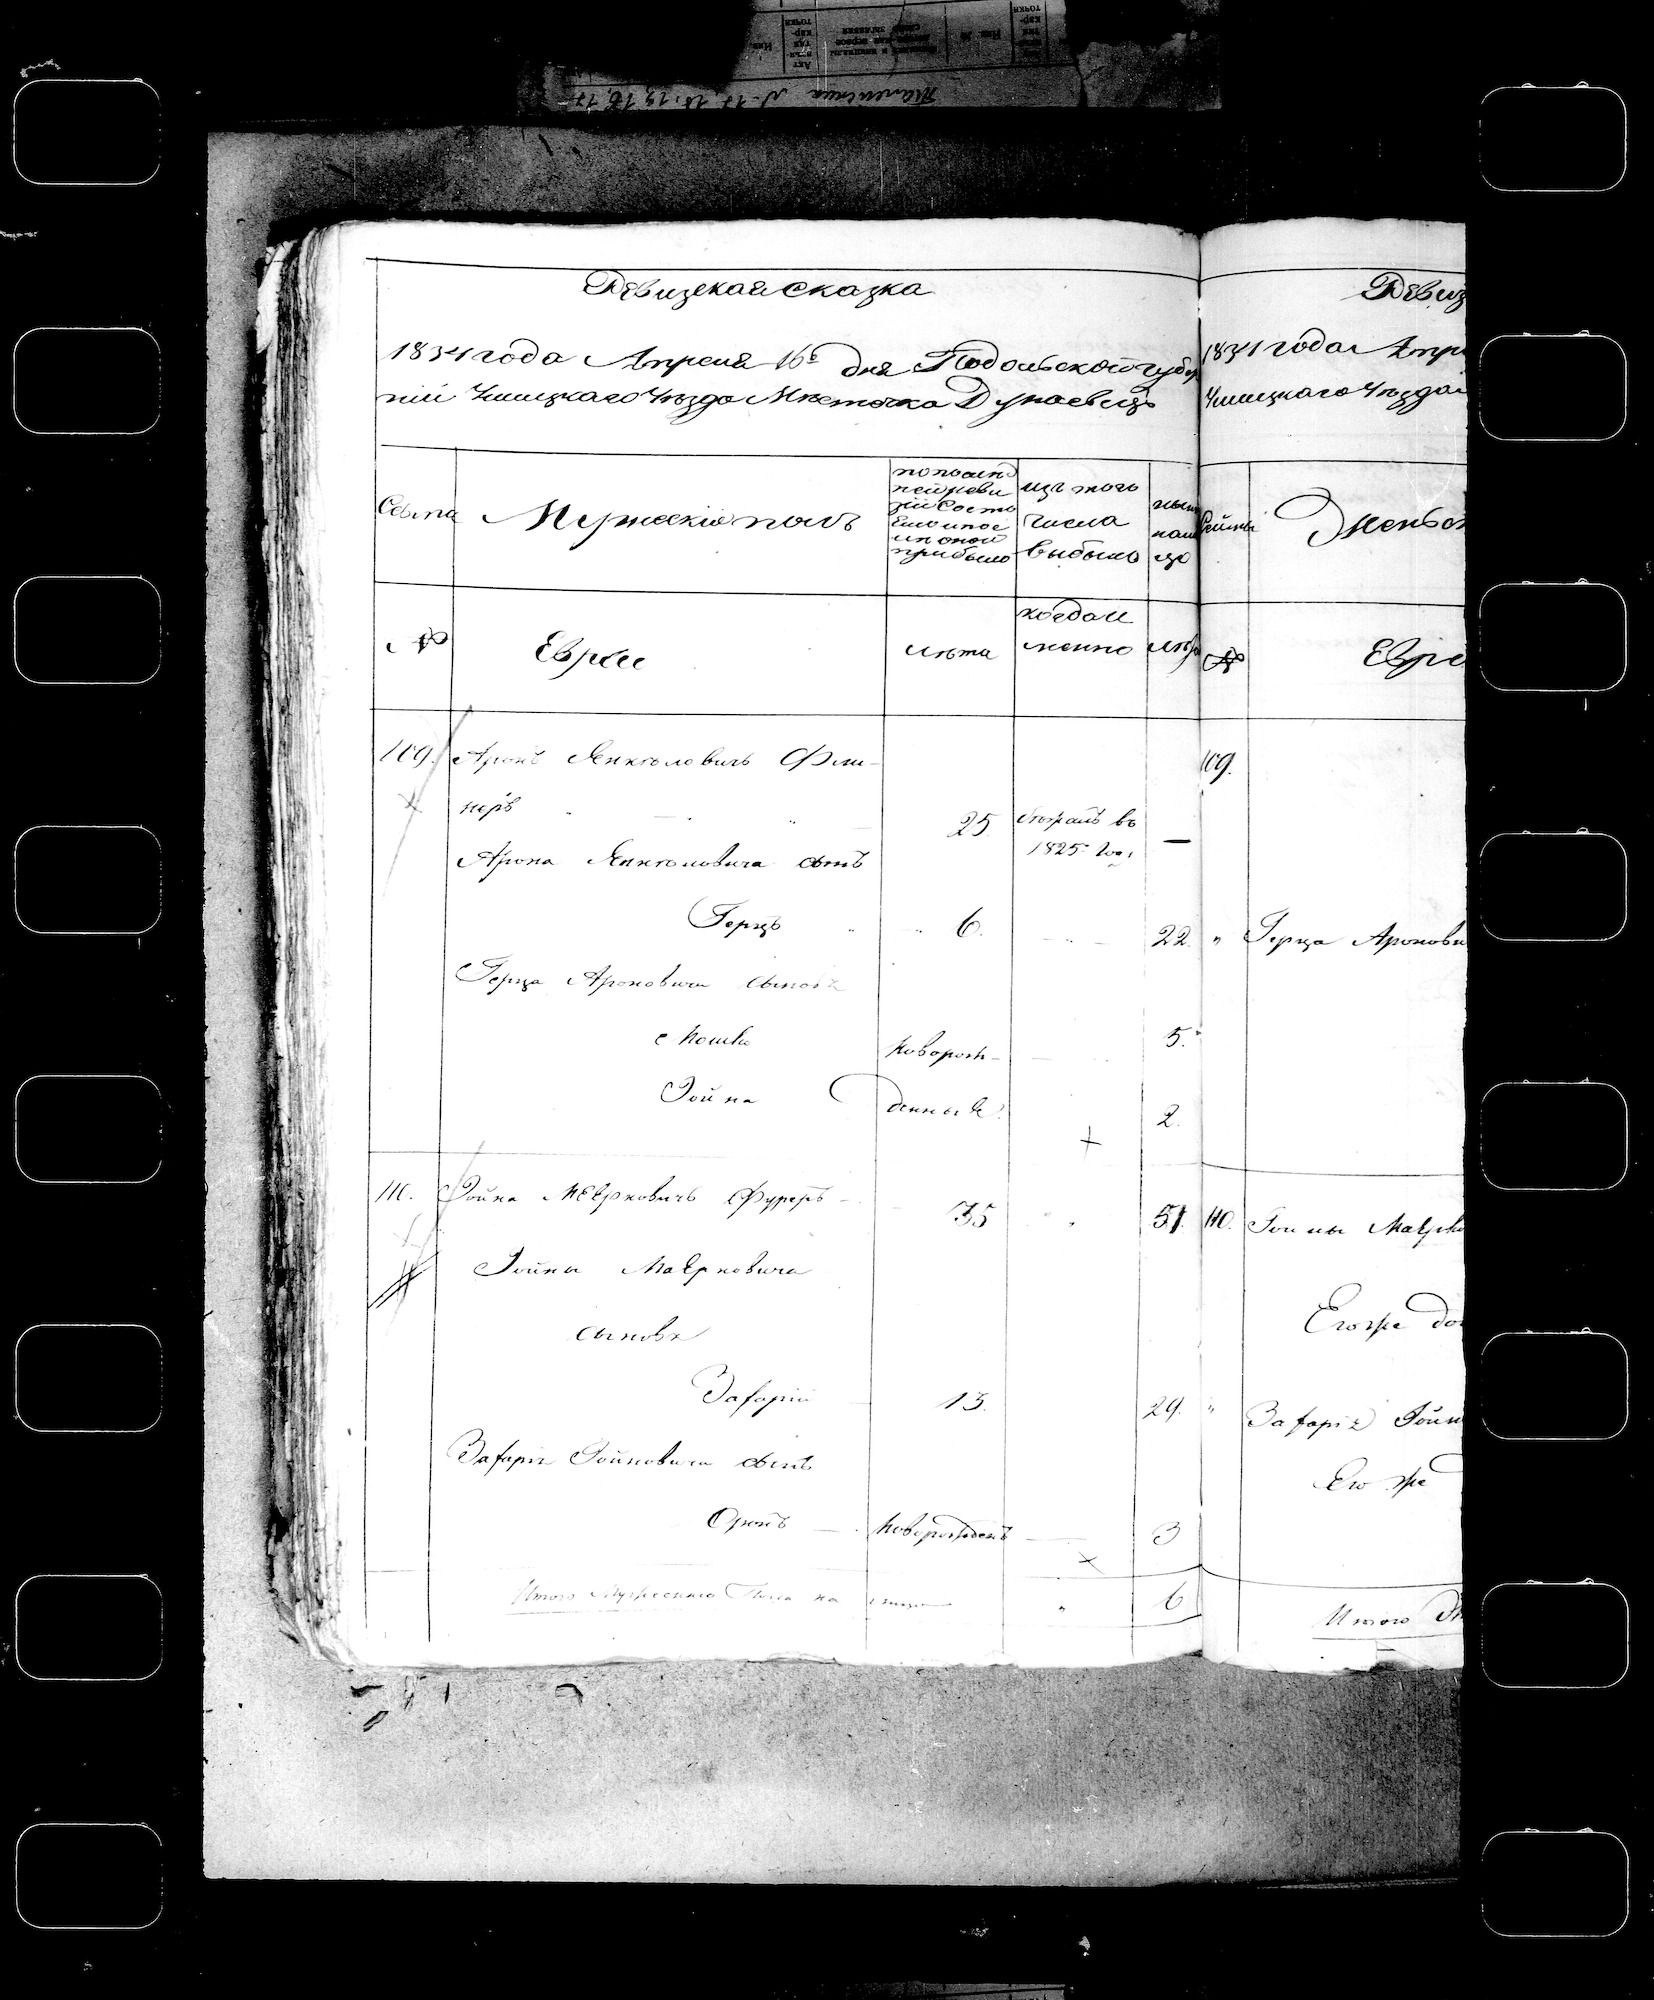 Ревизская сказка
1834 года Апреля 16 дня Подольской губер
нии Ушицкаго Уезда Местечка Дунаевец
Семьи
Мужеский пол
по послед
ней реви
зии состо
яло и после
оной
прибыло
из того
числа
выбыло
ныне
налицо
№
Евреи
лета
когда и
менно
лета
109.
Арон Янкелович Фиш-
нер
25
бежал в
1825 год.
—
Арона Янкеловича сын
Герц
6.
22.
Герца Ароновича сыновья
Мошко
новорож-
5.
Гойна
денные
2.
110.
Гойна Меерович Фурер
35
51.
Гойны
сыновья
Захарий
13.
29.
Захария Гойновича сын
Орон
новорожден
3
Итого Мужескаго Пола на лицо
6
Ревиз
1834 года Апр
Ушицкаго Уезда
Семьи
Женс
№
Евре
109.
" Герца Аронови
110.
Гойны
Его же до
" Захария Гойн
Его же
Итого